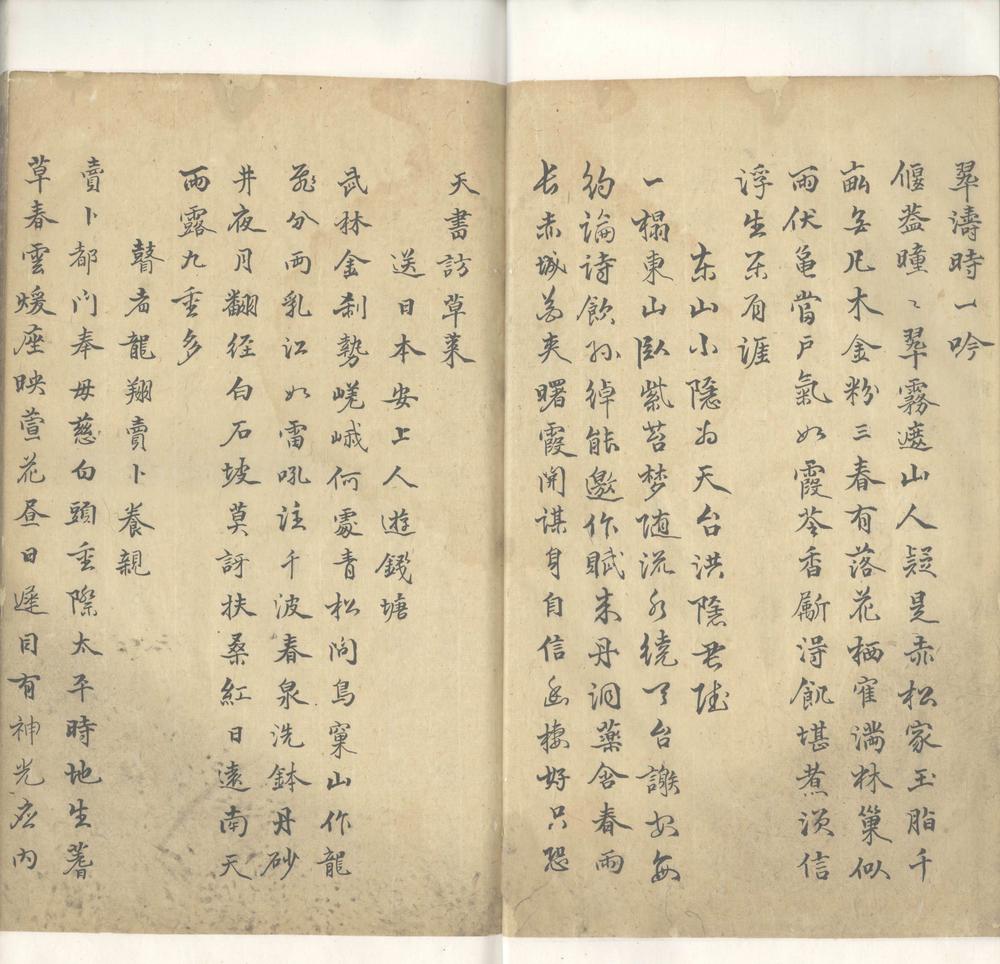 翠濤時一吟
偃葢曈〻翠霧遮山人疑是赤松家玉脂千
畝無凡木金粉三春有落花栖寉滿林巢似
雨伏龜當戶氣如霞苓香斸得飢堪煮須信
浮生不有涯
東山小隱為天台洪隱君陸
一榻東山臥紫苔梦随流水繞天台謝安每
約論詩飲孫綽能邀作賦来丹洞藥含春雨
長赤城花夾曙霞開謀身自信幽棲好只恐
天書訪草萊
送日本安上人遊錢塘
武林金刹勢嵯峨何處青松問鳥窠山作龍
飛分兩乳江如雷吼注千波春泉洗鉢丹砂
井夜月翻经白石坡莫訝扶桑紅日遠南天
雨露九重多
瞽者龍翔賣卜養親
賣卜都门奉母慈白頭重際太平時地生蓍
草春雲煖座映萱花昼日遲目有神光应内